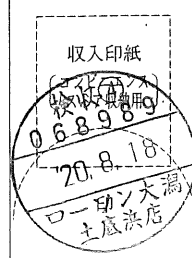 収入印紙
068989
'20.8.18
ローソン大潟
土底浜店